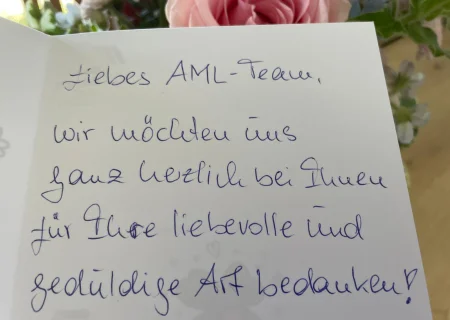 Liebes AML-Team,
wir möchten uns
ganz herzlich bei Ihnen
für Ihre liebevolle und
geduldige Art bedanken!